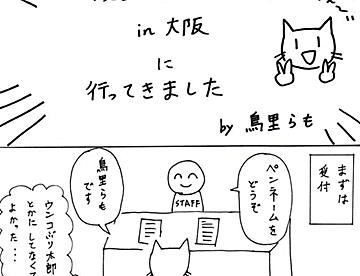 in 大阪
に
行ってきました
by 鳥里らも
まずは
受付
ペンネームを
どうぞ
STAFF
鳥里らも
です
ウンコぶり太郎
とかに してなくて
よかった…